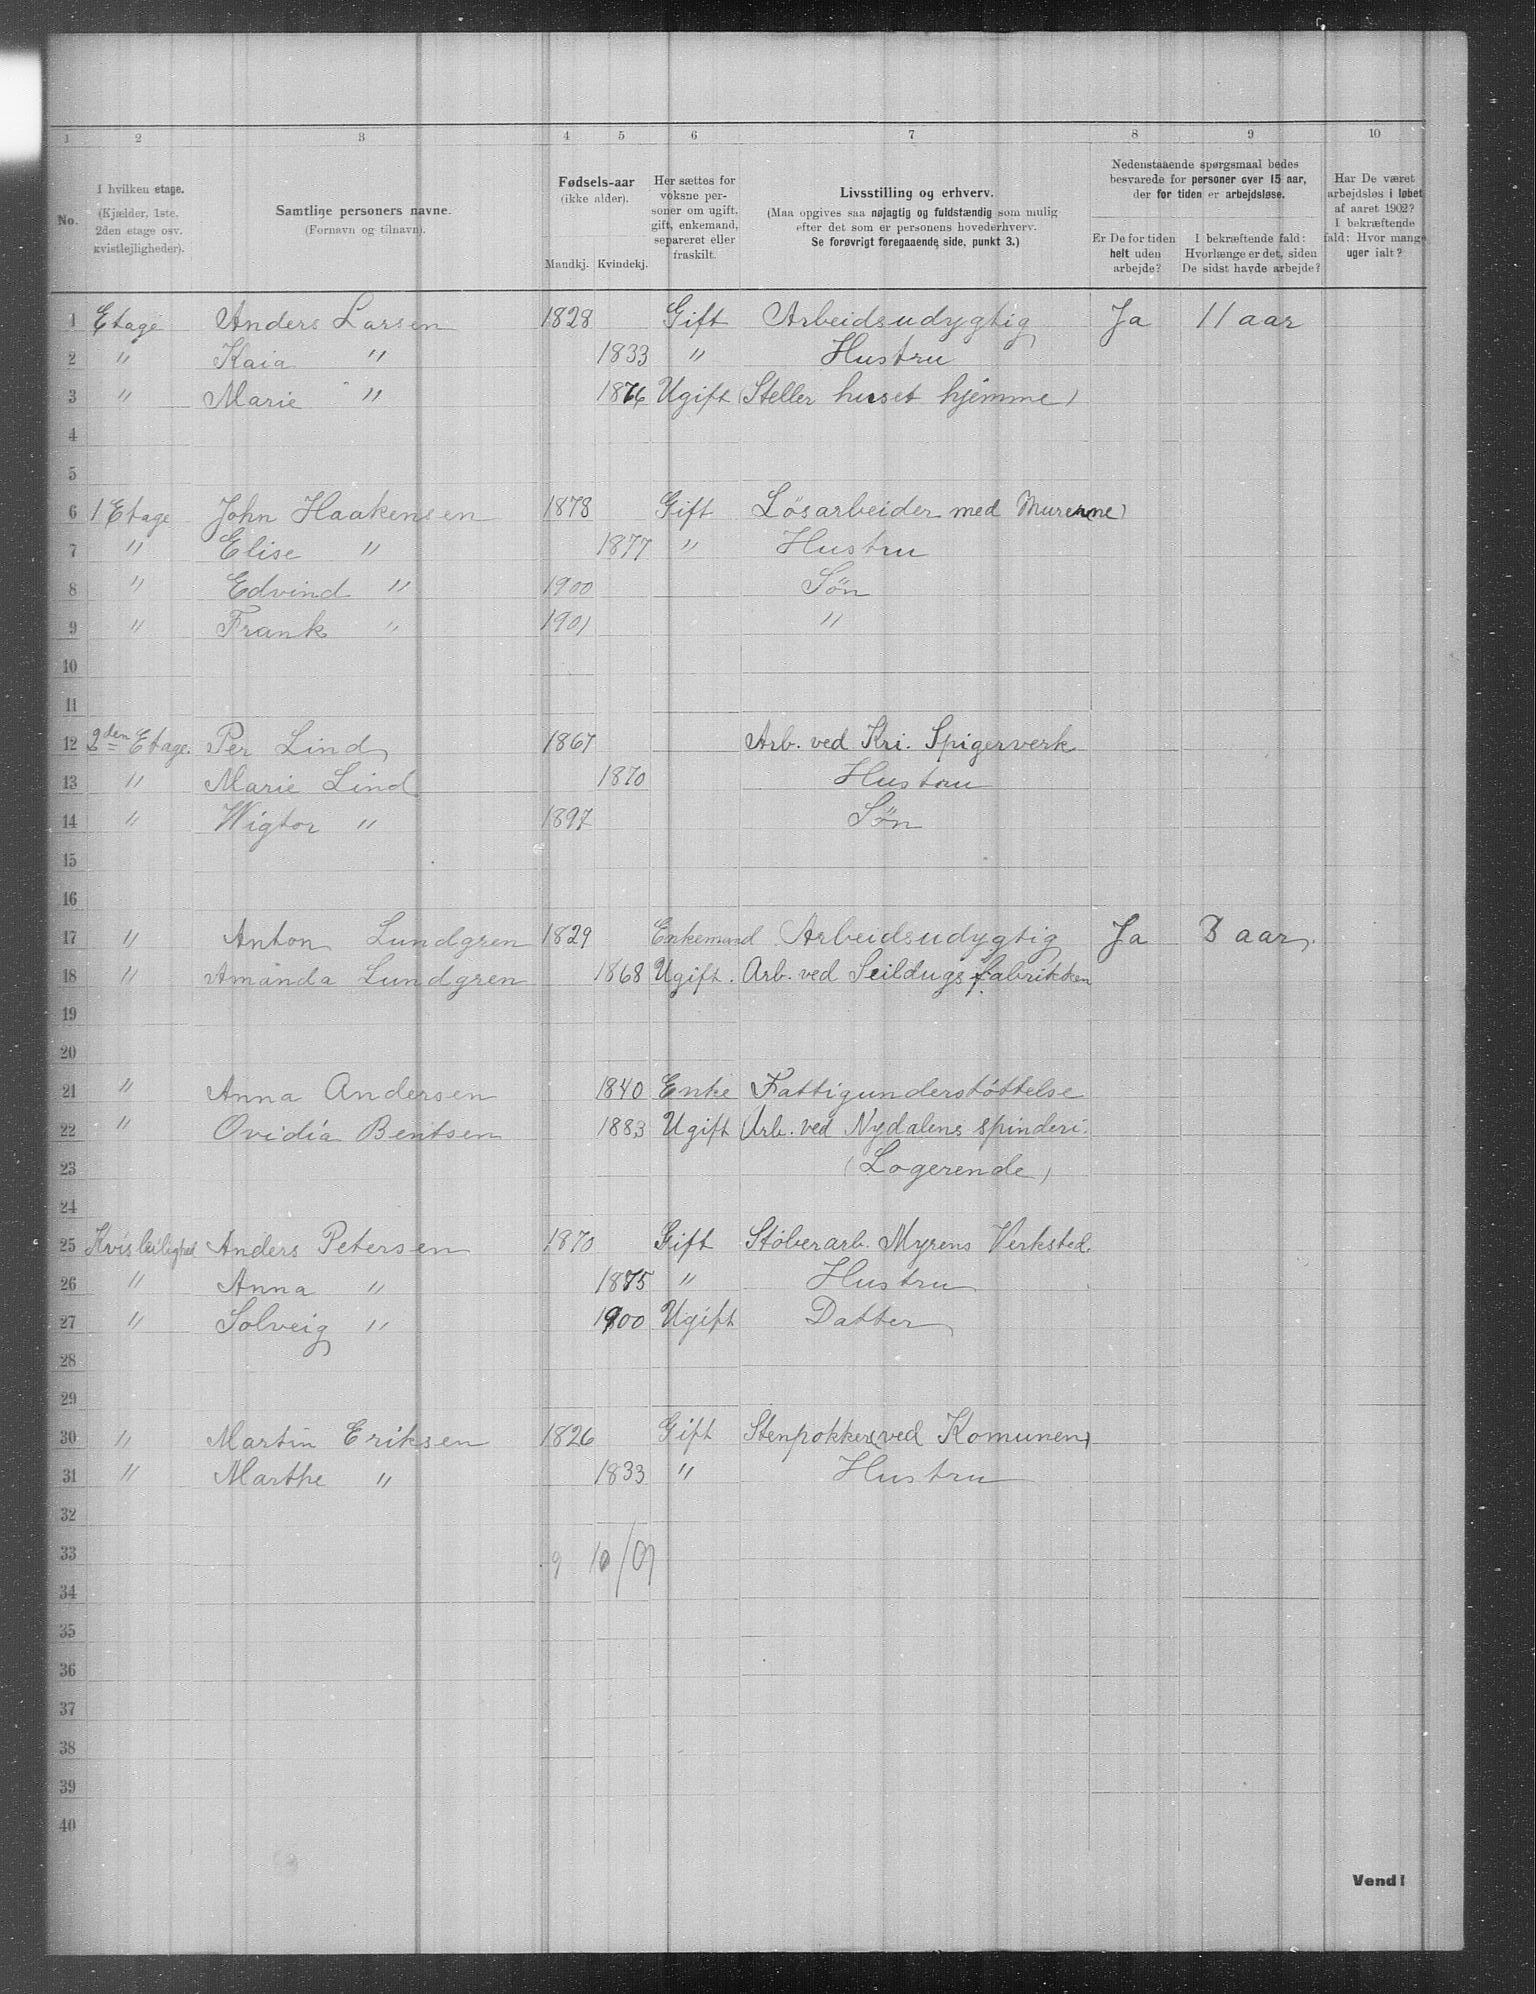 1 2 3 4 5 6 7 8 9 10
No.
I hvilken etage.
(Kjælder, 1ste,
2den etage osv.
kvistlejligheder).
Samtlige personers navne.
(Fornavn og tilnavn).
Fødsels-aar
(ikke alder).
Mandkj. Kvindekj.
Her sættes for
voksne per-
soner om ugift,
gift, enkemand,
separeret eller
fraskilt.
Livsstilling og erhverv.
(Maa opgives saa nøjagtig og fuldstændig som mulig
efter det som er personens hovederhverv.
Se forøvrigt foregaaende side, punkt 3.)
Nedenstaaende spørgsmaal bedes
besvarede for personer over 15 aar,
der for tiden er arbejdsløse.
Er De for tiden
helt uden
arbejde?
I bekræftende fald:
Hvorlænge er det, siden
De sidst havde arbejde?
Har De været
arbejdsløs i løbet
af aaret 1902?
I bekræftende
fald: Hvor mange
uger ialt?
1 Etage Anders Larsen 1828 Gift Arbeidsudygtig Ja 11 aar
2 " Kaia " 1833 " Hustru
3 " Marie " 1876 Ugift (Steller huset hjemme)
4
5
6 1 Etage John Haakensen 1878 Gift Løsarbeider med Murerne)
7 " Elise " 1877 " Hustru
8 " Edvind " 1900 Søn
9 " Frank " 1901 "
10
11
12 2den Etage. Per Lind 1867 Arb. ved Kri. Spigerverk
13 " Marie Lind 1870 Hustru
14 " Wigtor " 1897 Søn
15
16
17 " Anton Lundgren 1829 Enkemand Arbeidsudygtig Ja 3 aar.
18 " Amanda Lundgren 1868 Ugift. Arb. ved Seildugsfabrikken
19
20
21 " Anna Andersen 1840 Enke Fattigunderstøttelse
22 " Ovidia Bentsen 1883 Ugift Arb. ved Nydalens spinderi.
23 (Logerende)
24
25 Kvisleilighed Anders Petersen 1870 Gift Støberarb. Myrens Verksted.
26 " Anna " 1875 " Hustru
27 " Solveig " 1900 Ugift Datter
28
29
30 " Martin Eriksen 1826 Gift Stenpokker (ved Komunen)
31 " Marthe " 1833 " Hustru
32
33 9 10/09
34
35
36
37
38
39
40
Vend!